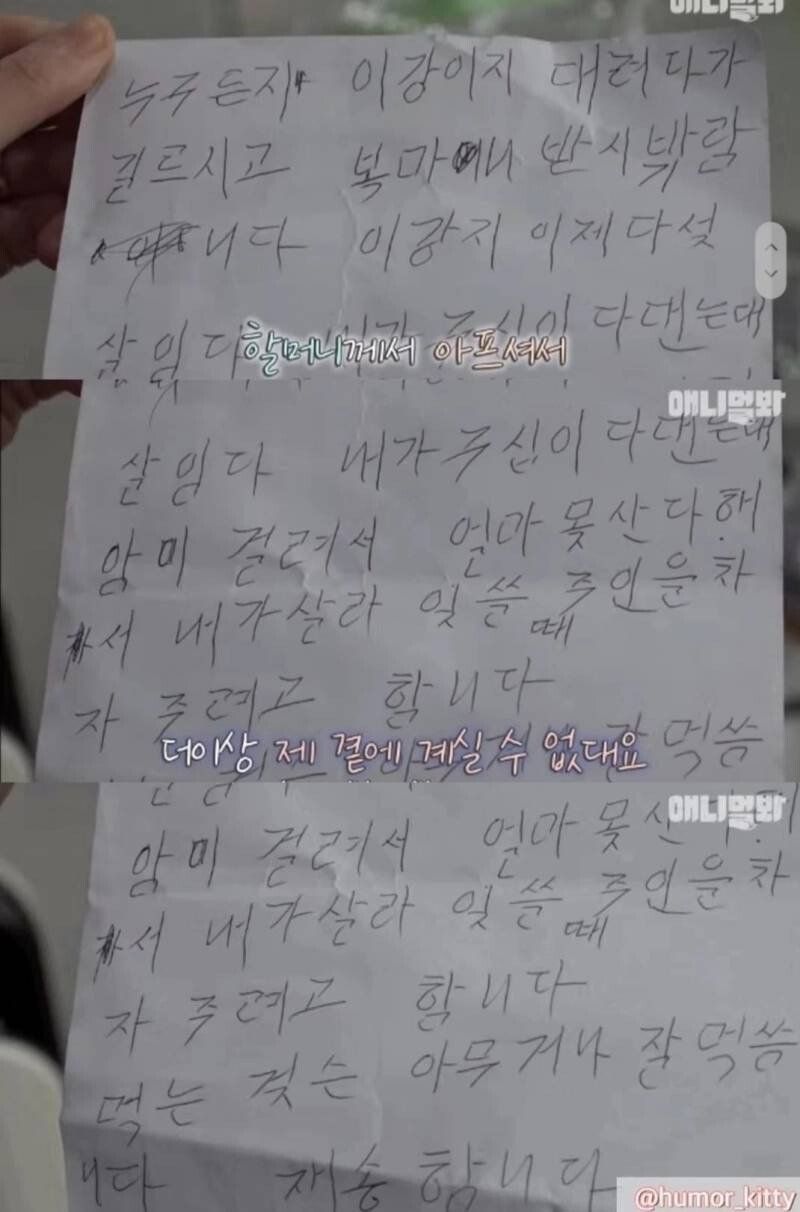 애니멀봐
누구든지 이강이지 대려다가
길르시고 복마애니 반시밖람
니다 이강지 이제다섯
살임다 내가 주십이 다댄는대
할머니께서 아프셔서
애니멀봐
살임다 내가주십이 다댄는대
암미 걸려서 얼마 못산다.해
서 내가살라 잊쓸때 주인을차
자 주려고 할니다
잘먹씀
더이상 제 곁에 계실 수 없대요
애니멀봐
암미 걸려서 얼마 못산
서 내가살라 잊쓸때 주인을차
자 주려고 할니다
먹는 것슨 아무거나 잘먹씀
니다 재송합니다
@humor_kitty